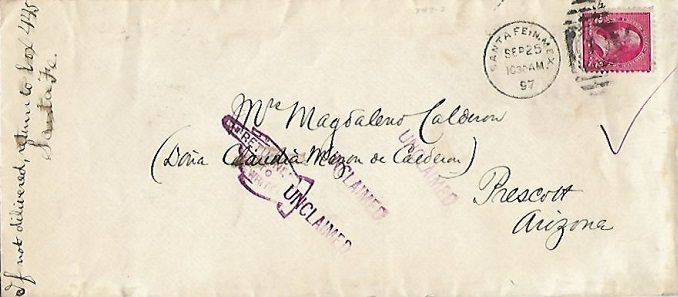 If not delivered, return to box 435
Santa Fe.
SANTA FE, N. MEX.
SEP 25
1030AM.
97
Mrs Magdaleno Calderon
(Doña Claudia Mason de Calderon)
Prescott
Arizona
RETURNED
TO
WRITER
UNCLAIMED
UNCLAIMED
UNCLAIMED